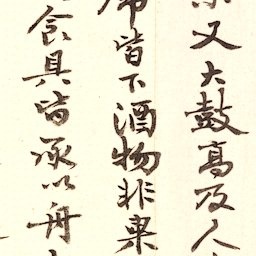 又大鼓高及人
皆下酒物非果
食具皆承以舟